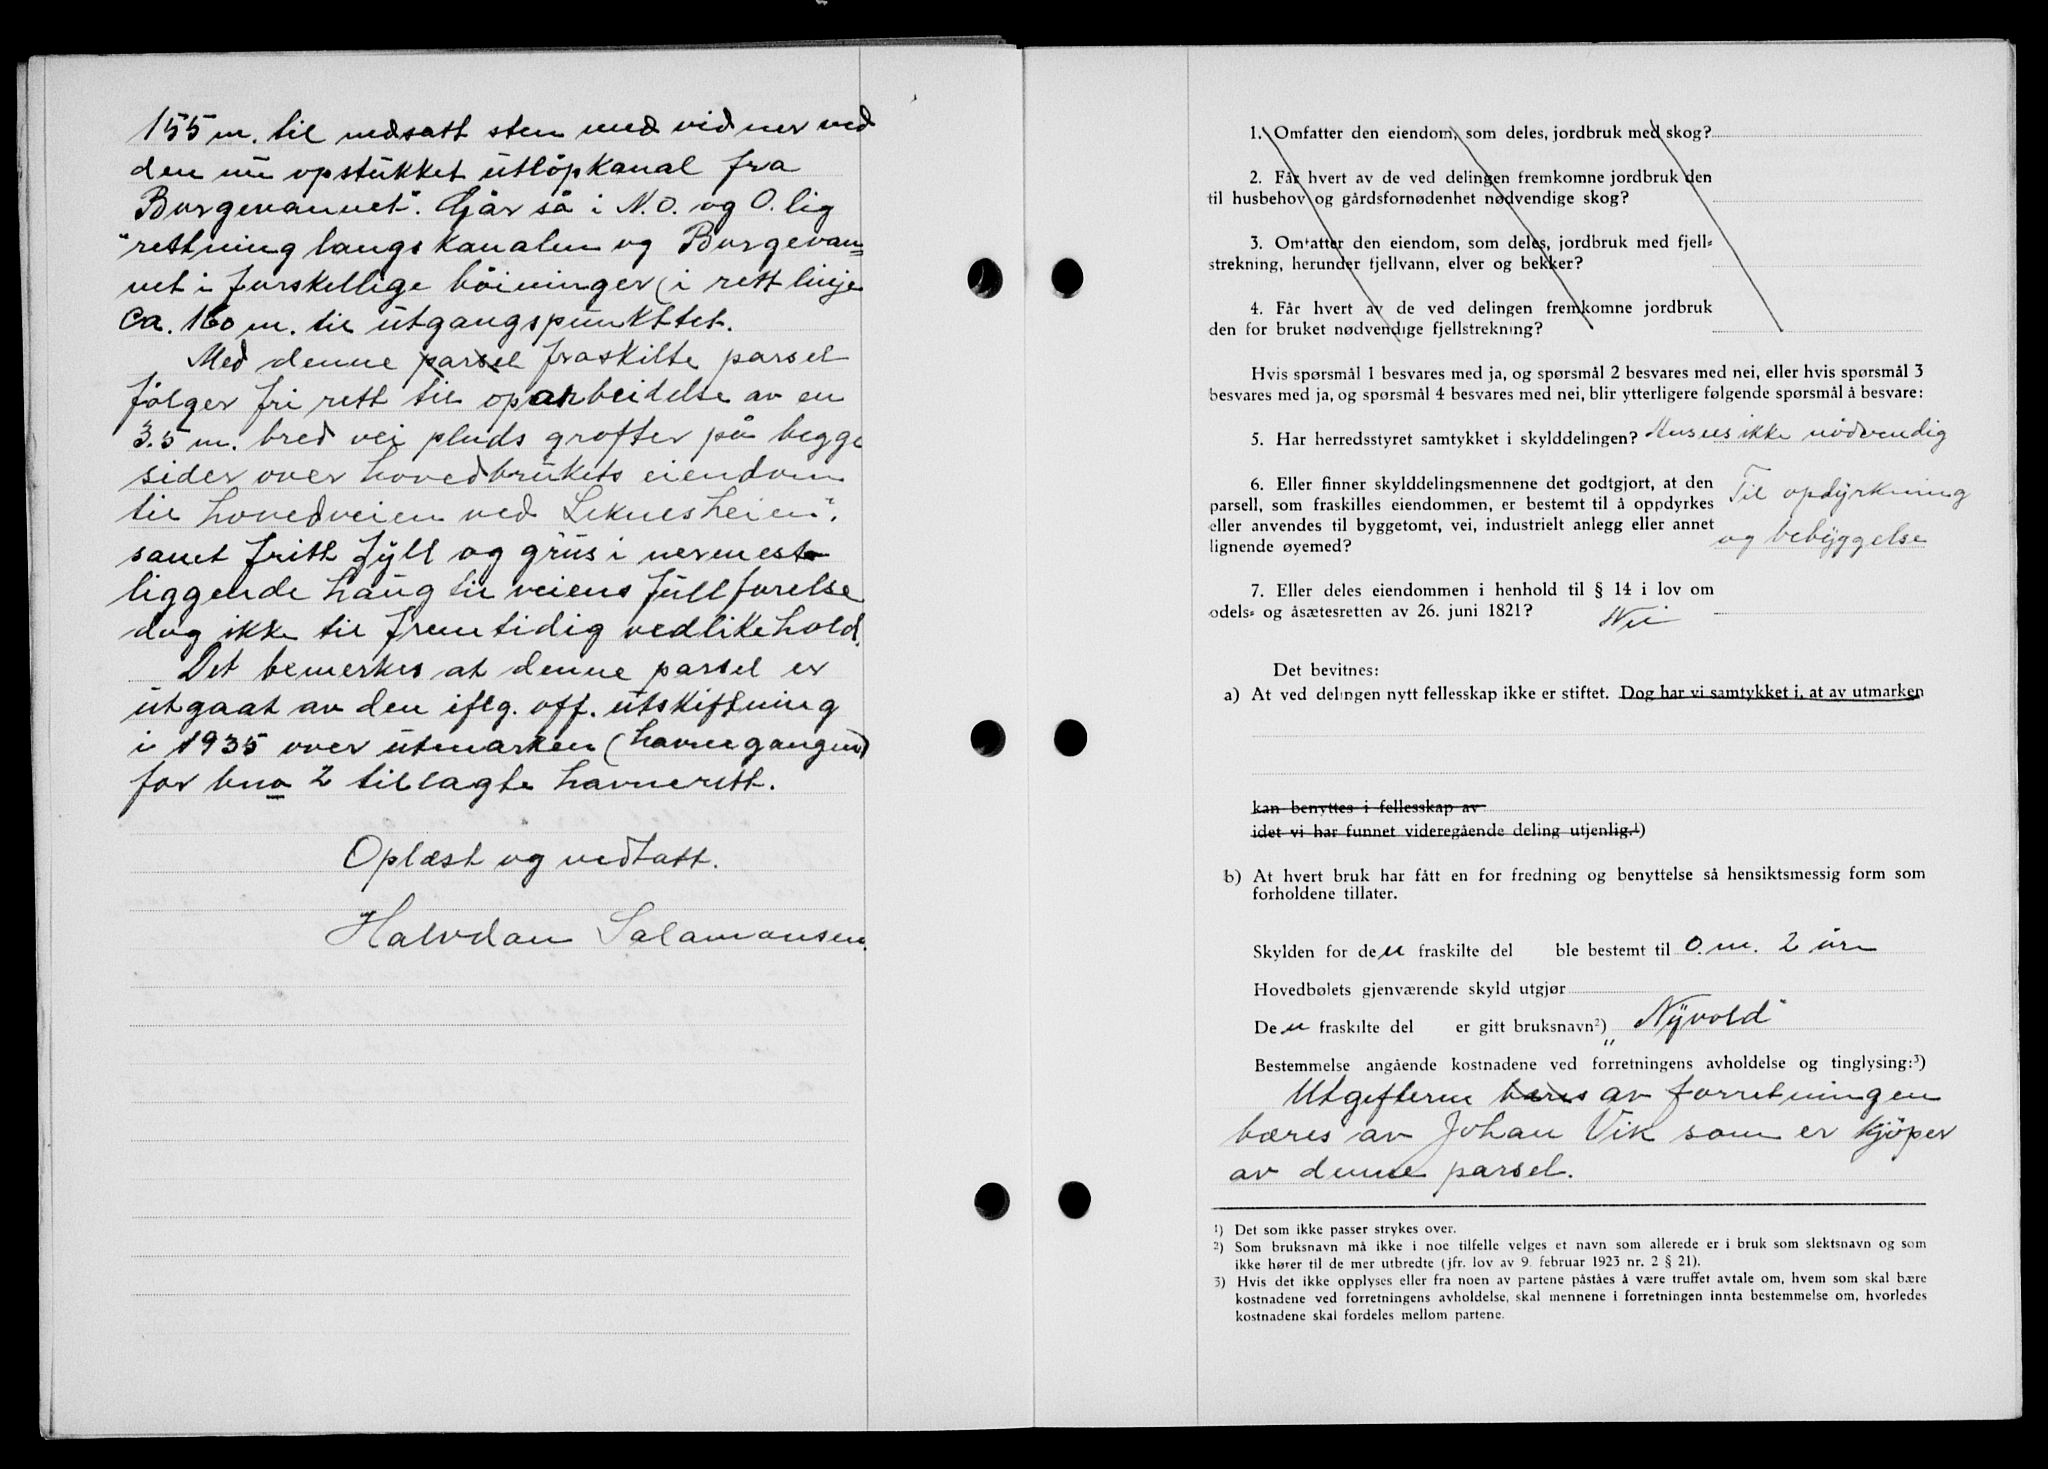 155 m. til nedsatt sten med vidner ved
den nu opstukket utløpkanal fra
"Borgevannet". Går så i N.O. og O. lig
rettning langs kanalen og Borgevan=
net i forskellige böininger (i rett linje
ca. 160 m. til utgangspunkttet.
Med denne parsel fraskilte parsel
følger fri rett til oparbeidelse av en
3.5 m. bred vei pluds grøfter på begge
sider over hovedbrukets eiendom
til hovedveien ved Leknesheien".
samt fritt fyll og grus i nermest
liggende haug til veiens fullførelse
dog ikke til fremtidig vedlikehold.
Det bemerkes at denne parsel er
utgaat av den iflg. off. utskiftning
i 1935 over utmarken (havnegangen)
for bno 2 tillagte havnerett.
Oplæst og vedtatt.
Halvdan Salamonsen.
1. Omfatter den eiendom, som deles, jordbruk med skog?
2. Får hvert av de ved delingen fremkomne jordbruk den
til husbehov og gårdsfornødenhet nødvendige skog?
3. Omfatter den eiendom, som deles, jordbruk med fjell-
strekning, herunder fjellvann, elver og bekker?
4. Får hvert av de ved delingen fremkomne jordbruk
den for bruket nødvendige fjellstrekning?
Hvis spørsmål 1 besvares med ja, og spørsmål 2 besvares med nei, eller hvis spørsmål 3
besvares med ja, og spørsmål 4 besvares med nei, blir ytterligere følgende spørsmål å besvare:
5. Har herredsstyret samtykket i skylddelingen? Ansees ikke nødvendig
6. Eller finner skylddelingsmennene det godtgjort, at den
parsell, som fraskilles eiendommen, er bestemt til å oppdyrkes
eller anvendes til byggetomt, vei, industrielt anlegg eller annet
lignende øyemed?
Til opdyrkning
og bebyggelse
7. Eller deles eiendommen i henhold til § 14 i lov om
odels- og åsætesretten av 26. juni 1821? Nei
Det bevitnes:
a) At ved delingen nytt fellesskap ikke er stiftet. Dog har vi samtykket i, at av utmarken
kan benyttes i fellesskap av
idet vi har funnet videregående deling utjenlig.¹)
b) At hvert bruk har fått en for fredning og benyttelse så hensiktsmessig form som
forholdene tillater.
Skylden for den fraskilte del ble bestemt til 0. m. 2 öre
Hovedbølets gjenværende skyld utgjør
Den fraskilte del er gitt bruksnavn²) "Nyvold"
Bestemmelse angående kostnadene ved forretningens avholdelse og tinglysing:³)
Utgifterne bæres av forretningen
bæres av Johan Vik som er kjöper
av denne parsel.
¹) Det som ikke passer strykes over.
²) Som bruksnavn må ikke i noe tilfelle velges et navn som allerede er i bruk som slektsnavn og som
ikke hører til de mer utbredte (jfr. lov av 9. februar 1923 nr. 2 § 21).
³) Hvis det ikke opplyses eller fra noen av partene påståes å være truffet avtale om, hvem som skal bære
kostnadene ved forretningens avholdelse, skal mennene i forretningen innta bestemmelse om, hvorledes
kostnadene skal fordeles mellom partene.